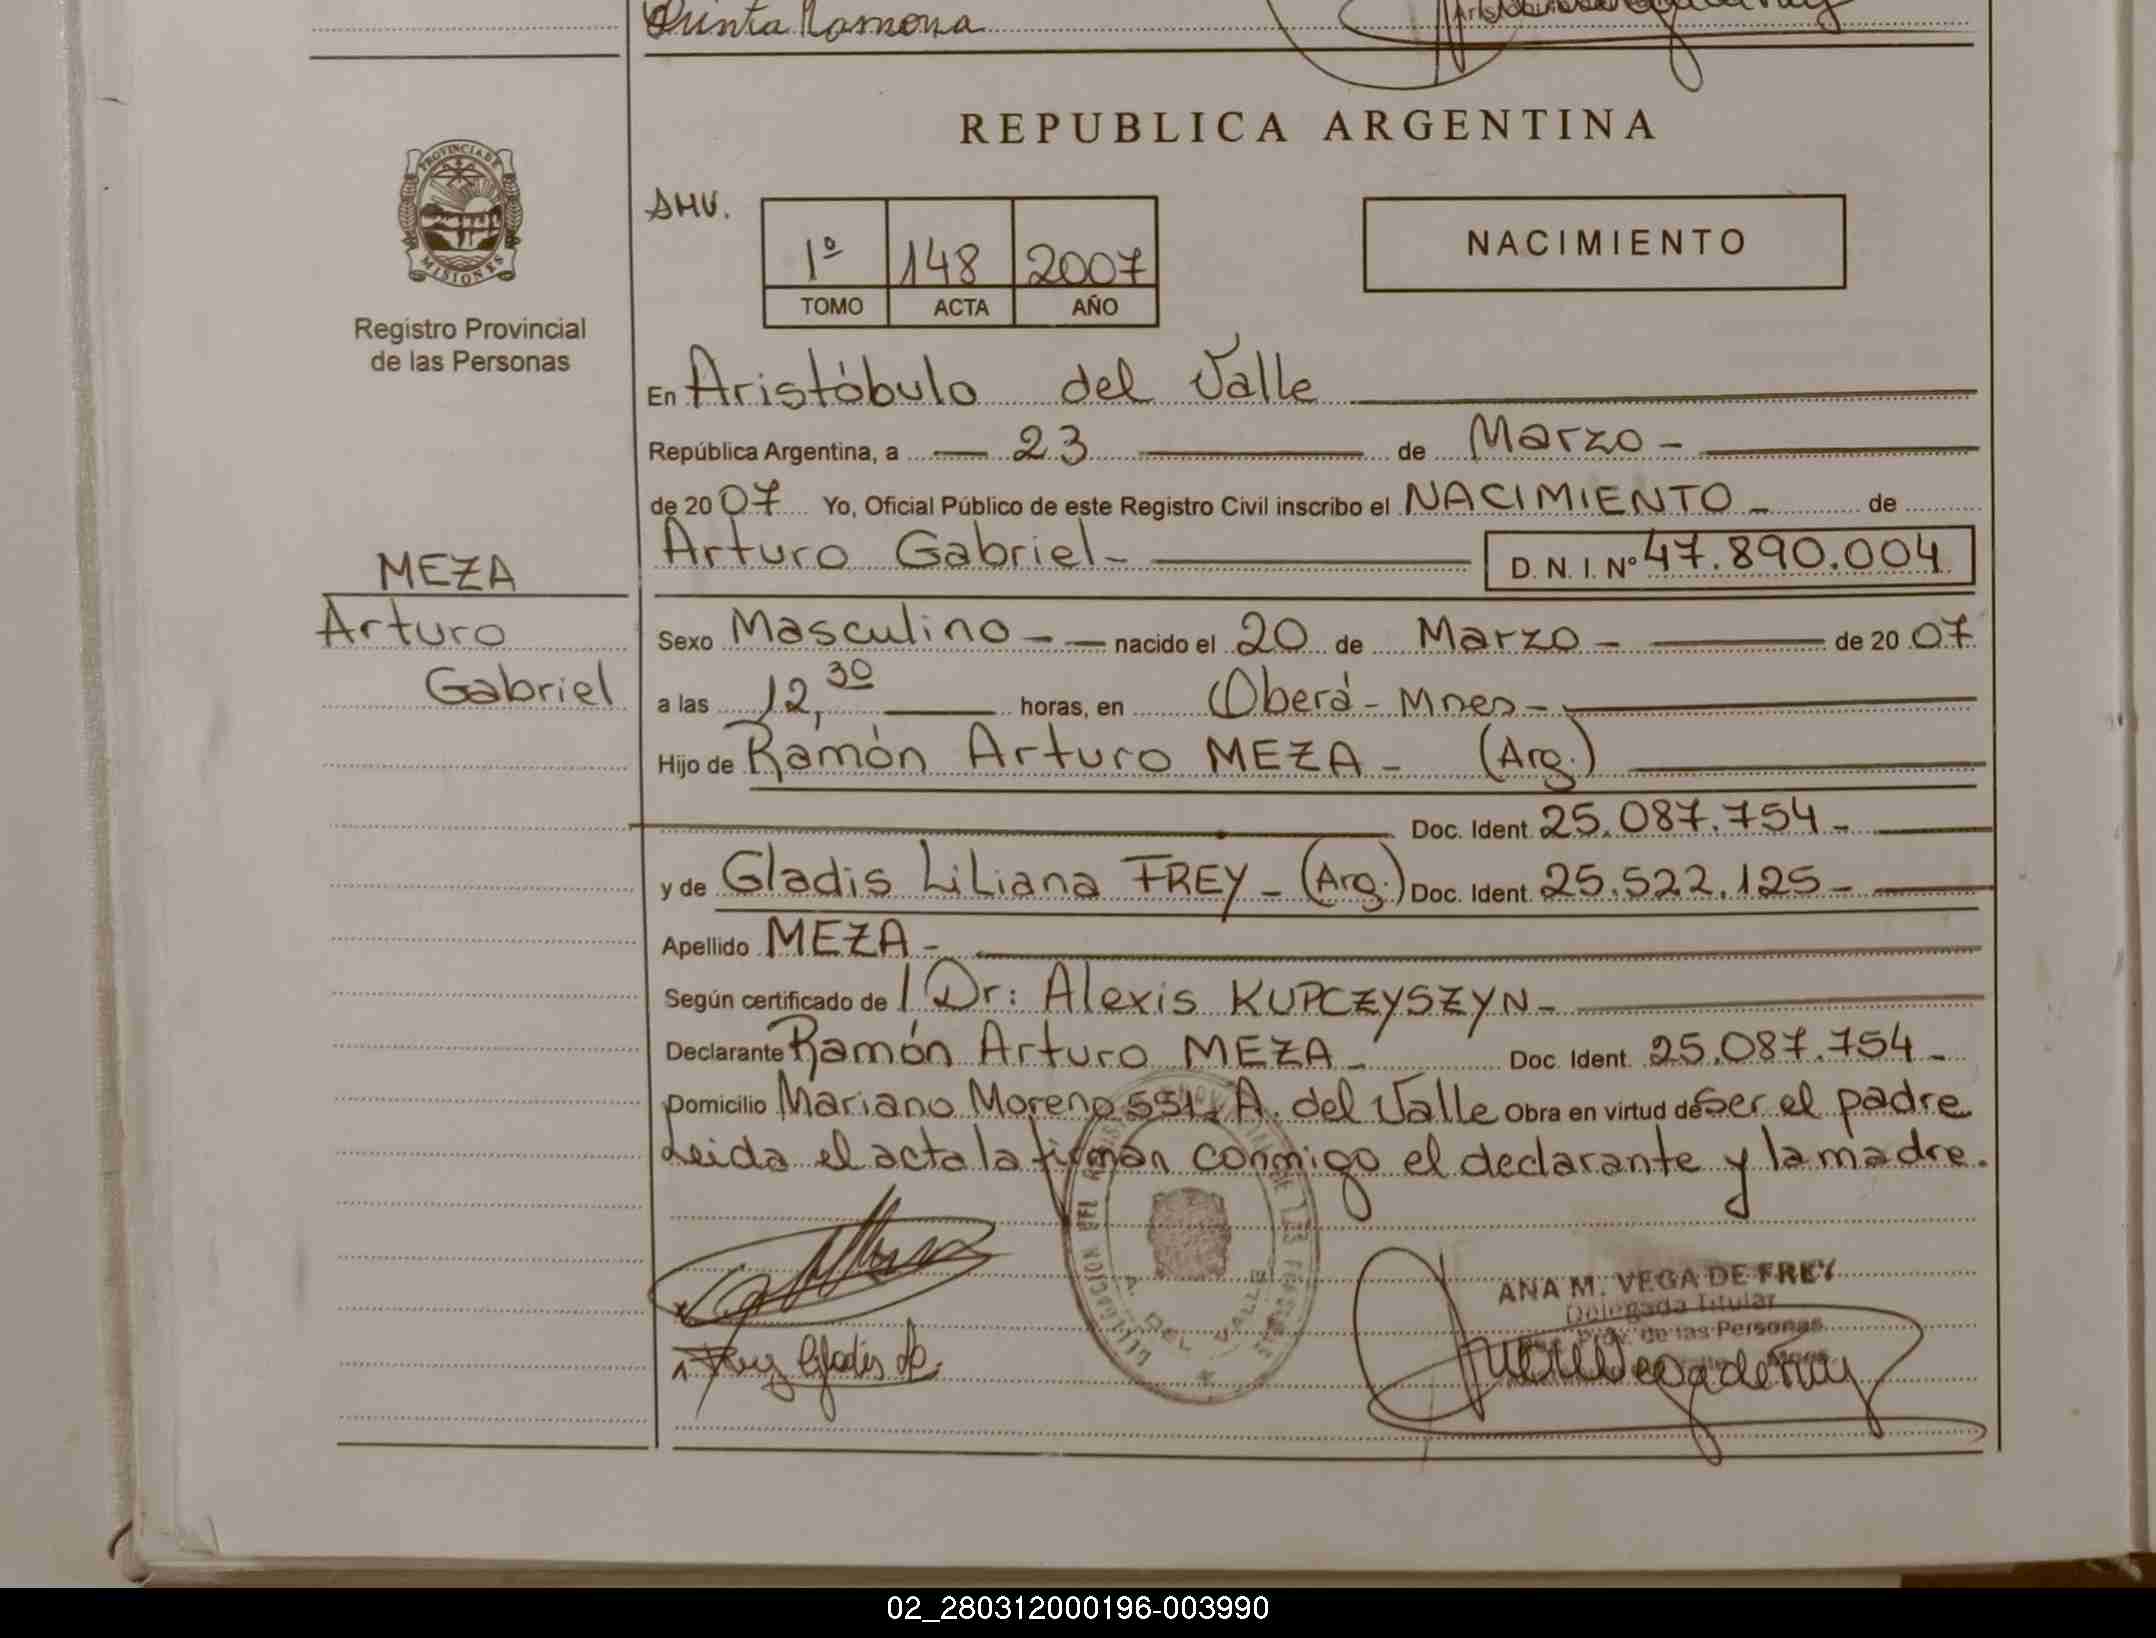 Quinta Ramona
REPUBLICA ARGENTINA
PROVINCIA DE
MISIONES
Registro Provincial
de las Personas
AHV.
1º 148 2007
TOMO ACTA AÑO
NACIMIENTO
En Aristóbulo del Valle
República Argentina, a — 23 — de Marzo -
de 2007 Yo, Oficial Público de este Registro Civil inscribo el NACIMIENTO - de
Arturo Gabriel - D. N. I. Nº 47.890.004
MEZA
Arturo
Gabriel
Sexo Masculino - — nacido el 20 de Marzo - de 2007
a las 12,30 horas, en Oberá - Mnes -
Hijo de Ramón Arturo MEZA - (Arg.)
Doc. Ident. 25.087.754 -
y de Gladis Liliana FREY - (Arg.) Doc. Ident. 25.522.125 -
Apellido MEZA -
Según certificado de l Dr: Alexis KUPCZYSZYN -
Declarante Ramón Arturo MEZA - Doc. Ident. 25.087.754 -
Domicilio Mariano Moreno 551 - A. del Valle Obra en virtud de ser el padre
Leida el acta la firman conmigo el declarante y la madre.
A. DEL VALLE
ANA M. VEGA DE FREY
Delegada Titular
Prov. de las Personas
Frey Gladis L.
02_280312000196-003990